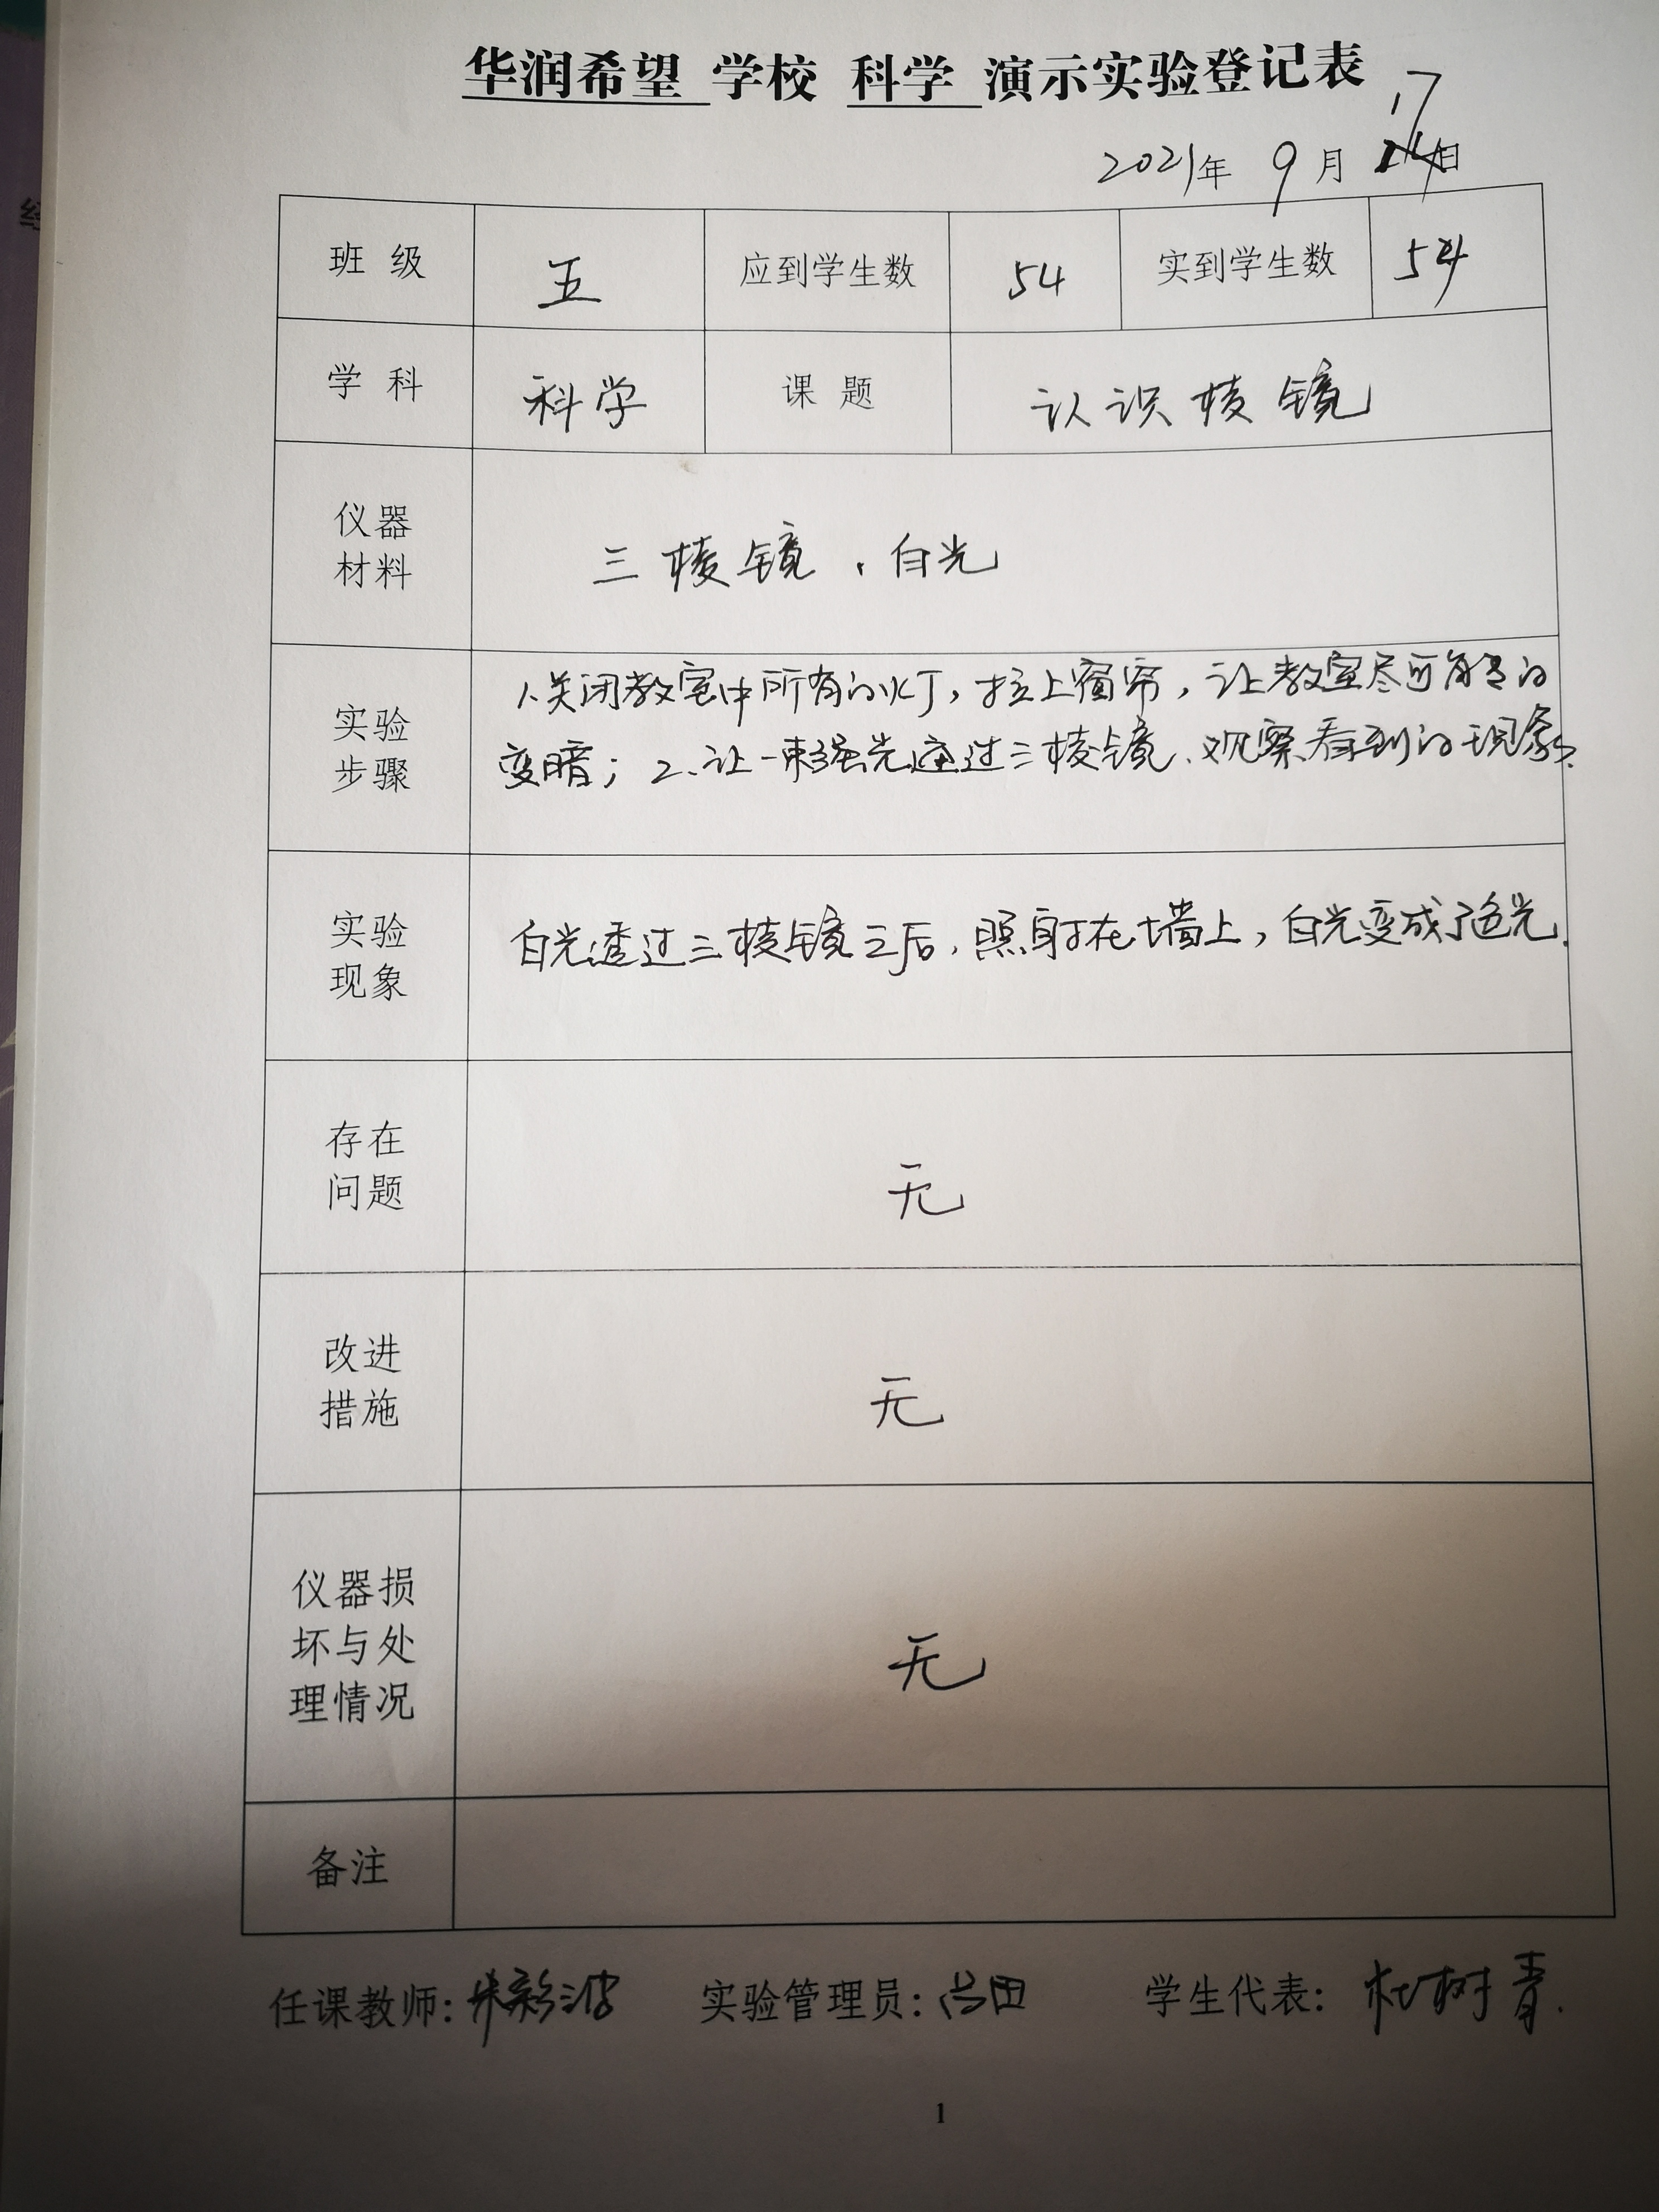 华润希望 学校 科学 演示实验登记表
17
2021年 9月 日
班 级 五 应到学生数 54 实到学生数 54
学 科 科学 课 题 认识棱镜
仪器
材料
三棱镜，白光
实验
步骤
1、关闭教室中所有的灯，拉上窗帘，让教室尽可能的
变暗；2、让一束强光通过三棱镜、观察看到的现象.
实验
现象
白光透过三棱镜之后，照射在墙上，白光变成了色光.
存在
问题
无
改进
措施
无
仪器损
坏与处
理情况
无
备注
任课教师： 实验管理员： 学生代表：杜树青.
1